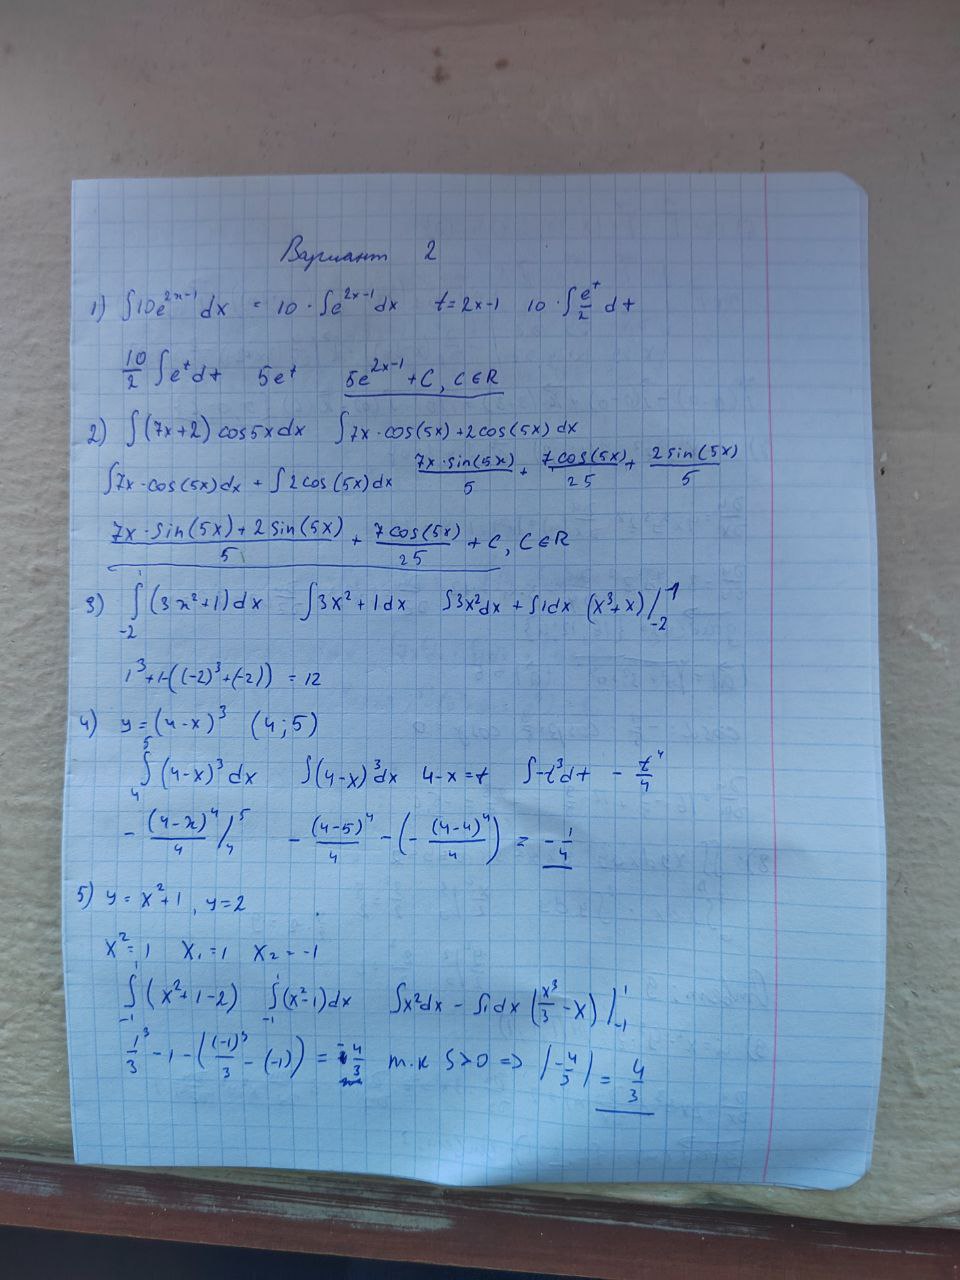 Вариант 2
1) ∫10e^{2x-1} dx = 10 · ∫e^{2x-1} dx t = 2x-1 10 · ∫ e^t/2 dt
10/2 ∫e^t dt 5e^t 5e^{2x-1} + C, C∈R
2) ∫(7x+2) cos5x dx ∫7x·cos(5x)+2cos(5x) dx
∫7x·cos(5x)dx + ∫2cos(5x)dx 7x·sin(5x)/5 + 7cos(5x)/25 + 2sin(5x)/5
7x·sin(5x)+2sin(5x)/5 + 7cos(5x)/25 + C, C∈R
3) ∫_{-2}^{1} (3x²+1) dx ∫3x²+1dx ∫3x²dx + ∫1dx (x³+x)/_{-2}^{1}
1³+1-((-2)³+(-2)) = 12
4) y = (4-x)³ (4;5)
∫_{4}^{5} (4-x)³ dx ∫(4-x)³dx 4-x=t ∫-t³dt - t⁴/4
- (4-x)⁴/4 /_{4}^{5} - (4-5)⁴/4 - (- (4-4)⁴/4) = - 1/4
5) y = x²+1, y=2
x²=1 x₁=1 x₂=-1
∫_{-1}^{1} (x²+1-2) ∫_{-1}^{1} (x²-1)dx ∫x²dx - ∫1dx (x³/3 - x) |_{-1}^{1}
1³/3 - 1 - ((-1)³/3 - (-1)) = - 4/3 т.к S>0 => |-4/3| = 4/3